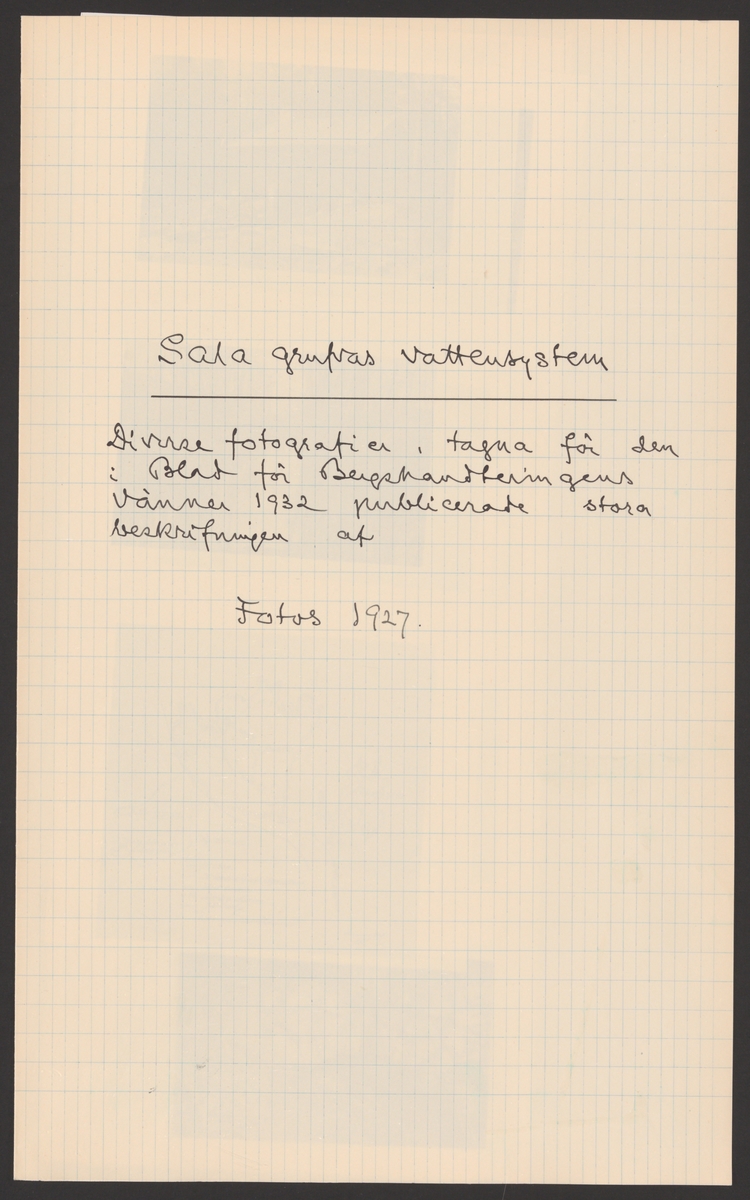 Sala grufvas vattensystem
Diverse fotografier, tagna för den
i Blad för Bergshandteringens
Vänner 1932 publicerade stora
beskrifningen af
Fotos 1927.